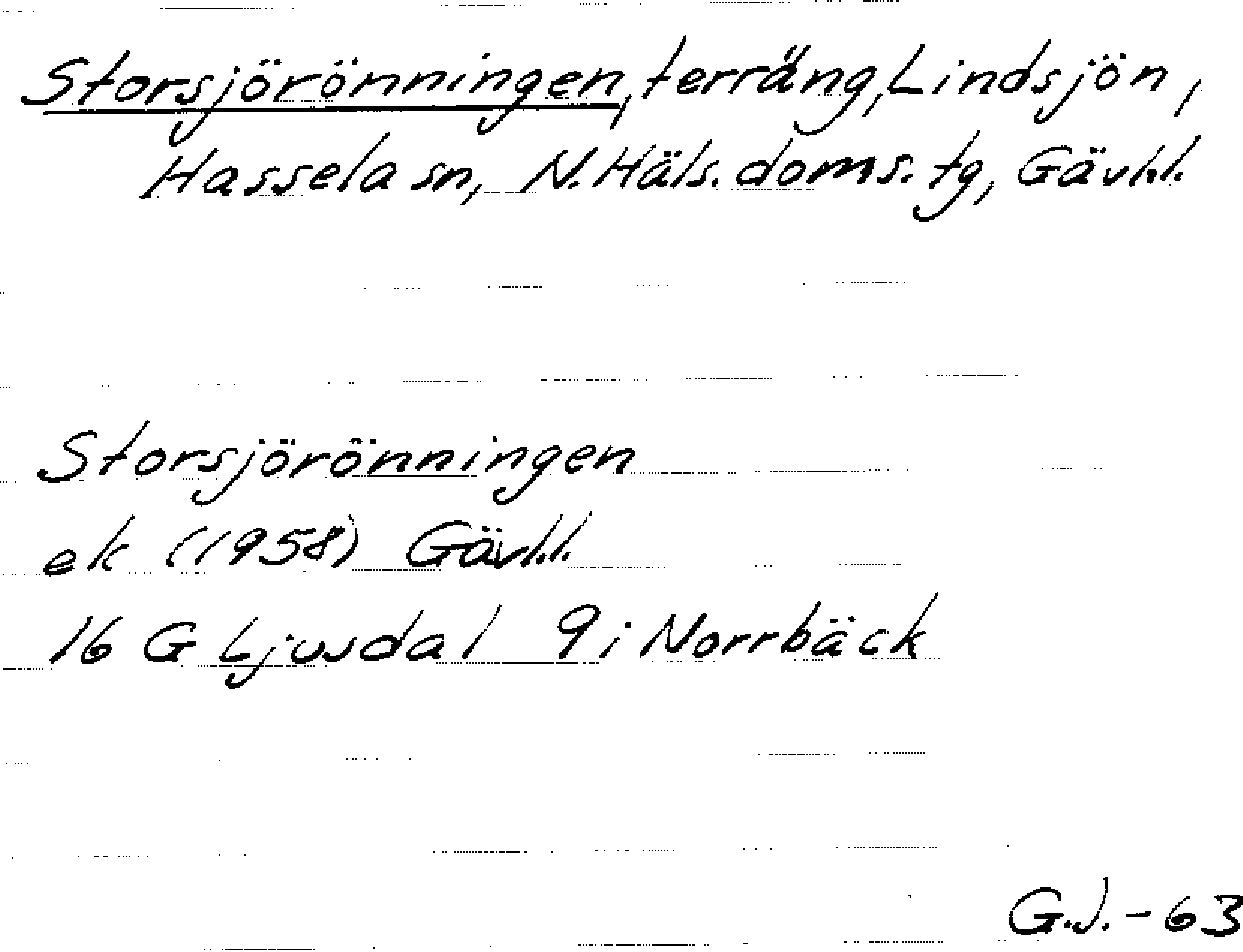 Storsjörönningen, terräng, Lindsjön,
Hassela sn, N. Häls. doms. tg, Gävl.l.
Storsjörönningen
ek (1958) Gävl.l.
16 G Ljusdal 9i Norrbäck
G.J.-63